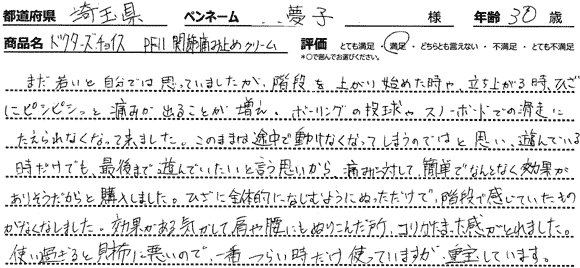 都道府県 埼玉県 ペンネーム 夢子 様 年齢 30 歳
商品名 ドクターズチョイス PF11 関節痛み止めクリーム 評価 とても満足・満足・どちらとも言えない・不満足・とても不満足
*○で囲んでお選びください。
まだ若いと自分では思っていましたが、階段を上がり始めた時や、立ち上がる時、ひざ
にピシピシっと痛みが出ることが増え、ボーリングの投球や、スノーボードでの滑走に
たえられなくなって来ました。このままは途中で動けなくなってしまうのではと思い、遊んでいる
時だけでも、最後まで遊んでいたいと言う思いから、痛みに対して、簡単でなんとなく効果が
ありそうだからと購入しました。ひざに全体的になじむようにぬっただけで、階段で感じていたもの
がなくなしました。効果がある気がして肩や腰にもぬりこんだ所、コリかたまった感がとれました。
使い過ぎると財布に悪いので、一番つらい時だけ使っていますが、重宝しています。